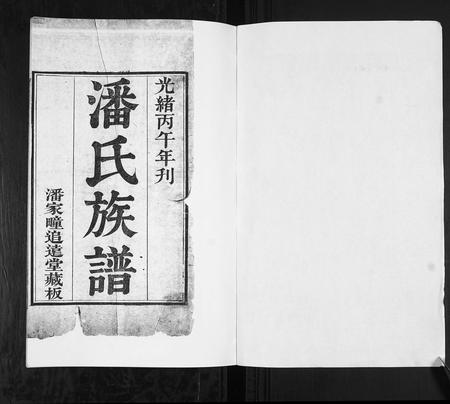 光緒丙午年刊
潘氏族譜
潘家疃追遠堂藏板